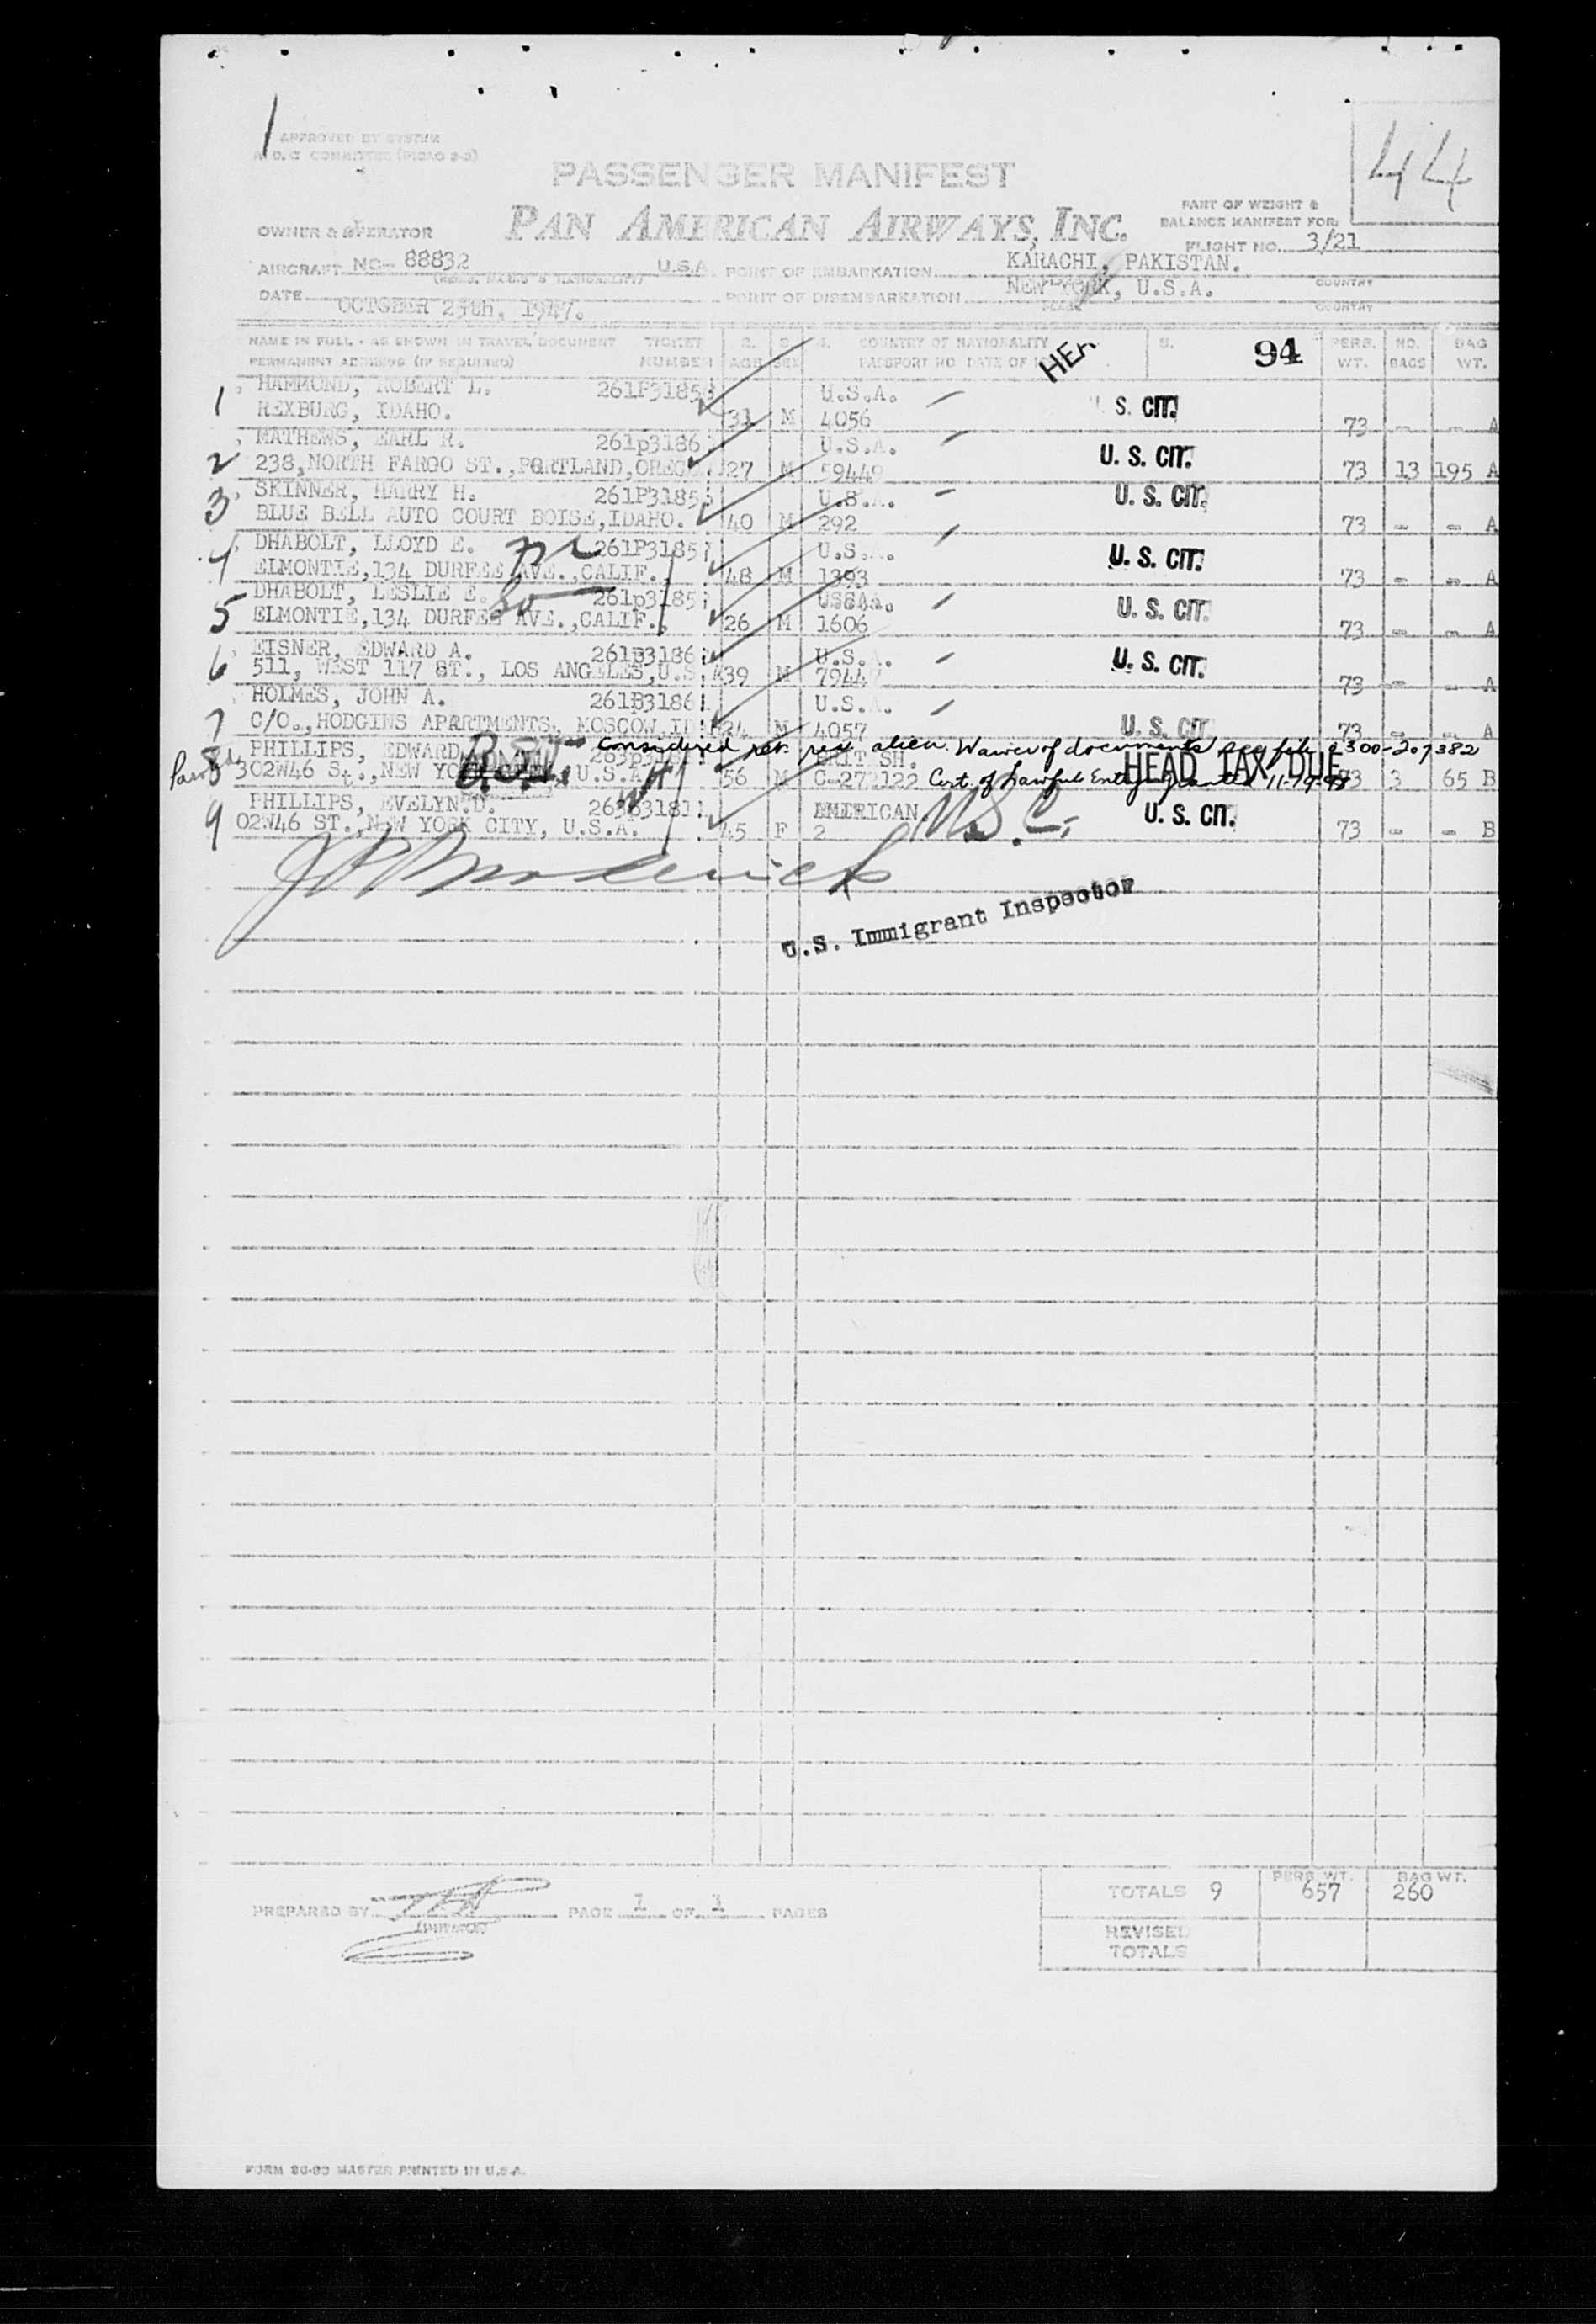 1
APPROVED BY SYSTEM
A. O. C. COMMITTEE (PICAO 2-3)
44
PASSENGER MANIFEST
PAN AMERICAN AIRWAYS, INC.
PART OF WEIGHT &
BALANCE MANIFEST FOR
OWNER & OPERATOR
FLIGHT NO. 3/21
AIRCRAFT NC- 88832 U.S.A. POINT OF EMBARKATION KARACHI, PAKISTAN.
COUNTRY
DATE OCTOBER 25th, 1947. POINT OF DISEMBARKATION NEW YORK, U.S.A.
PLACE COUNTRY
NAME IN FULL - AS SHOWN IN TRAVEL DOCUMENT TICKET 2. 3. 4. COUNTRY OF NATIONALITY 5. 94 PERS. NO. BAG
PERMANENT ADDRESS (IF REQUIRED) NUMBER AGE SEX PASSPORT NO DATE OF WT. BAGS WT.
HAMMOND, ROBERT L. 261P3185 U.S.A.
1 REXBURG, IDAHO. 31 M 4056 U. S. CIT. 73 - - A
MATHEWS, EARL R. 261p3186 U.S.A.
2 238,NORTH FARGO ST.,PORTLAND,OREG. 27 M 59449 U. S. CIT. 73 13 195 A
SKINNER, HARRY H. 261P3185 U.S.A. U. S. CIT.
3 BLUE BELL AUTO COURT BOISE,IDAHO. 40 M 292 73 - - A
DHABOLT, LLOYD E. 261P3185 U.S.A.
4 ELMONTIE,134 DURFEE AVE.,CALIF. 48 M 1393 U. S. CIT. 73 - - A
DHABOLT, LESLIE E. 261p3185
5 ELMONTIE,134 DURFEE AVE.,CALIF. 26 M 1606 U. S. CIT. 73 - - A
EISNER, EDWARD A. 261B3186 U.S.A.
6 511, WEST 117 ST., LOS ANGELES,U.S. 39 M 7944 U. S. CIT. 73 - - A
HOLMES, JOHN A. 261B3186 U.S.A.
7 C/O.,HODGINS APARTMENTS, MOSCOW,ID 24 M 4057 U. S. CIT. 73 - - A
PHILLIPS, EDWARD considered ret. res. alien. Waiver of documents see file 2300-207382
8 302W46 St.,NEW YORK CITY, U.S.A. 56 M C-272122 Cert. of Lawful Entry granted HEAD TAX DUE 73 3 65 B
PHILLIPS, EVELYN.D. AMERICAN. U.S.C. U. S. CIT.
9 02W46 ST.,NEW YORK CITY, U.S.A. 45 F 2 73 - - B
U.S. Immigrant Inspector
TOTALS 9 PERS WT. 657 BAG WT. 260
PREPARED BY PAGE 1 OF 1 PAGES
REVISED
TOTALS
FORM 20-80 MASTER PRINTED IN U.S.A.